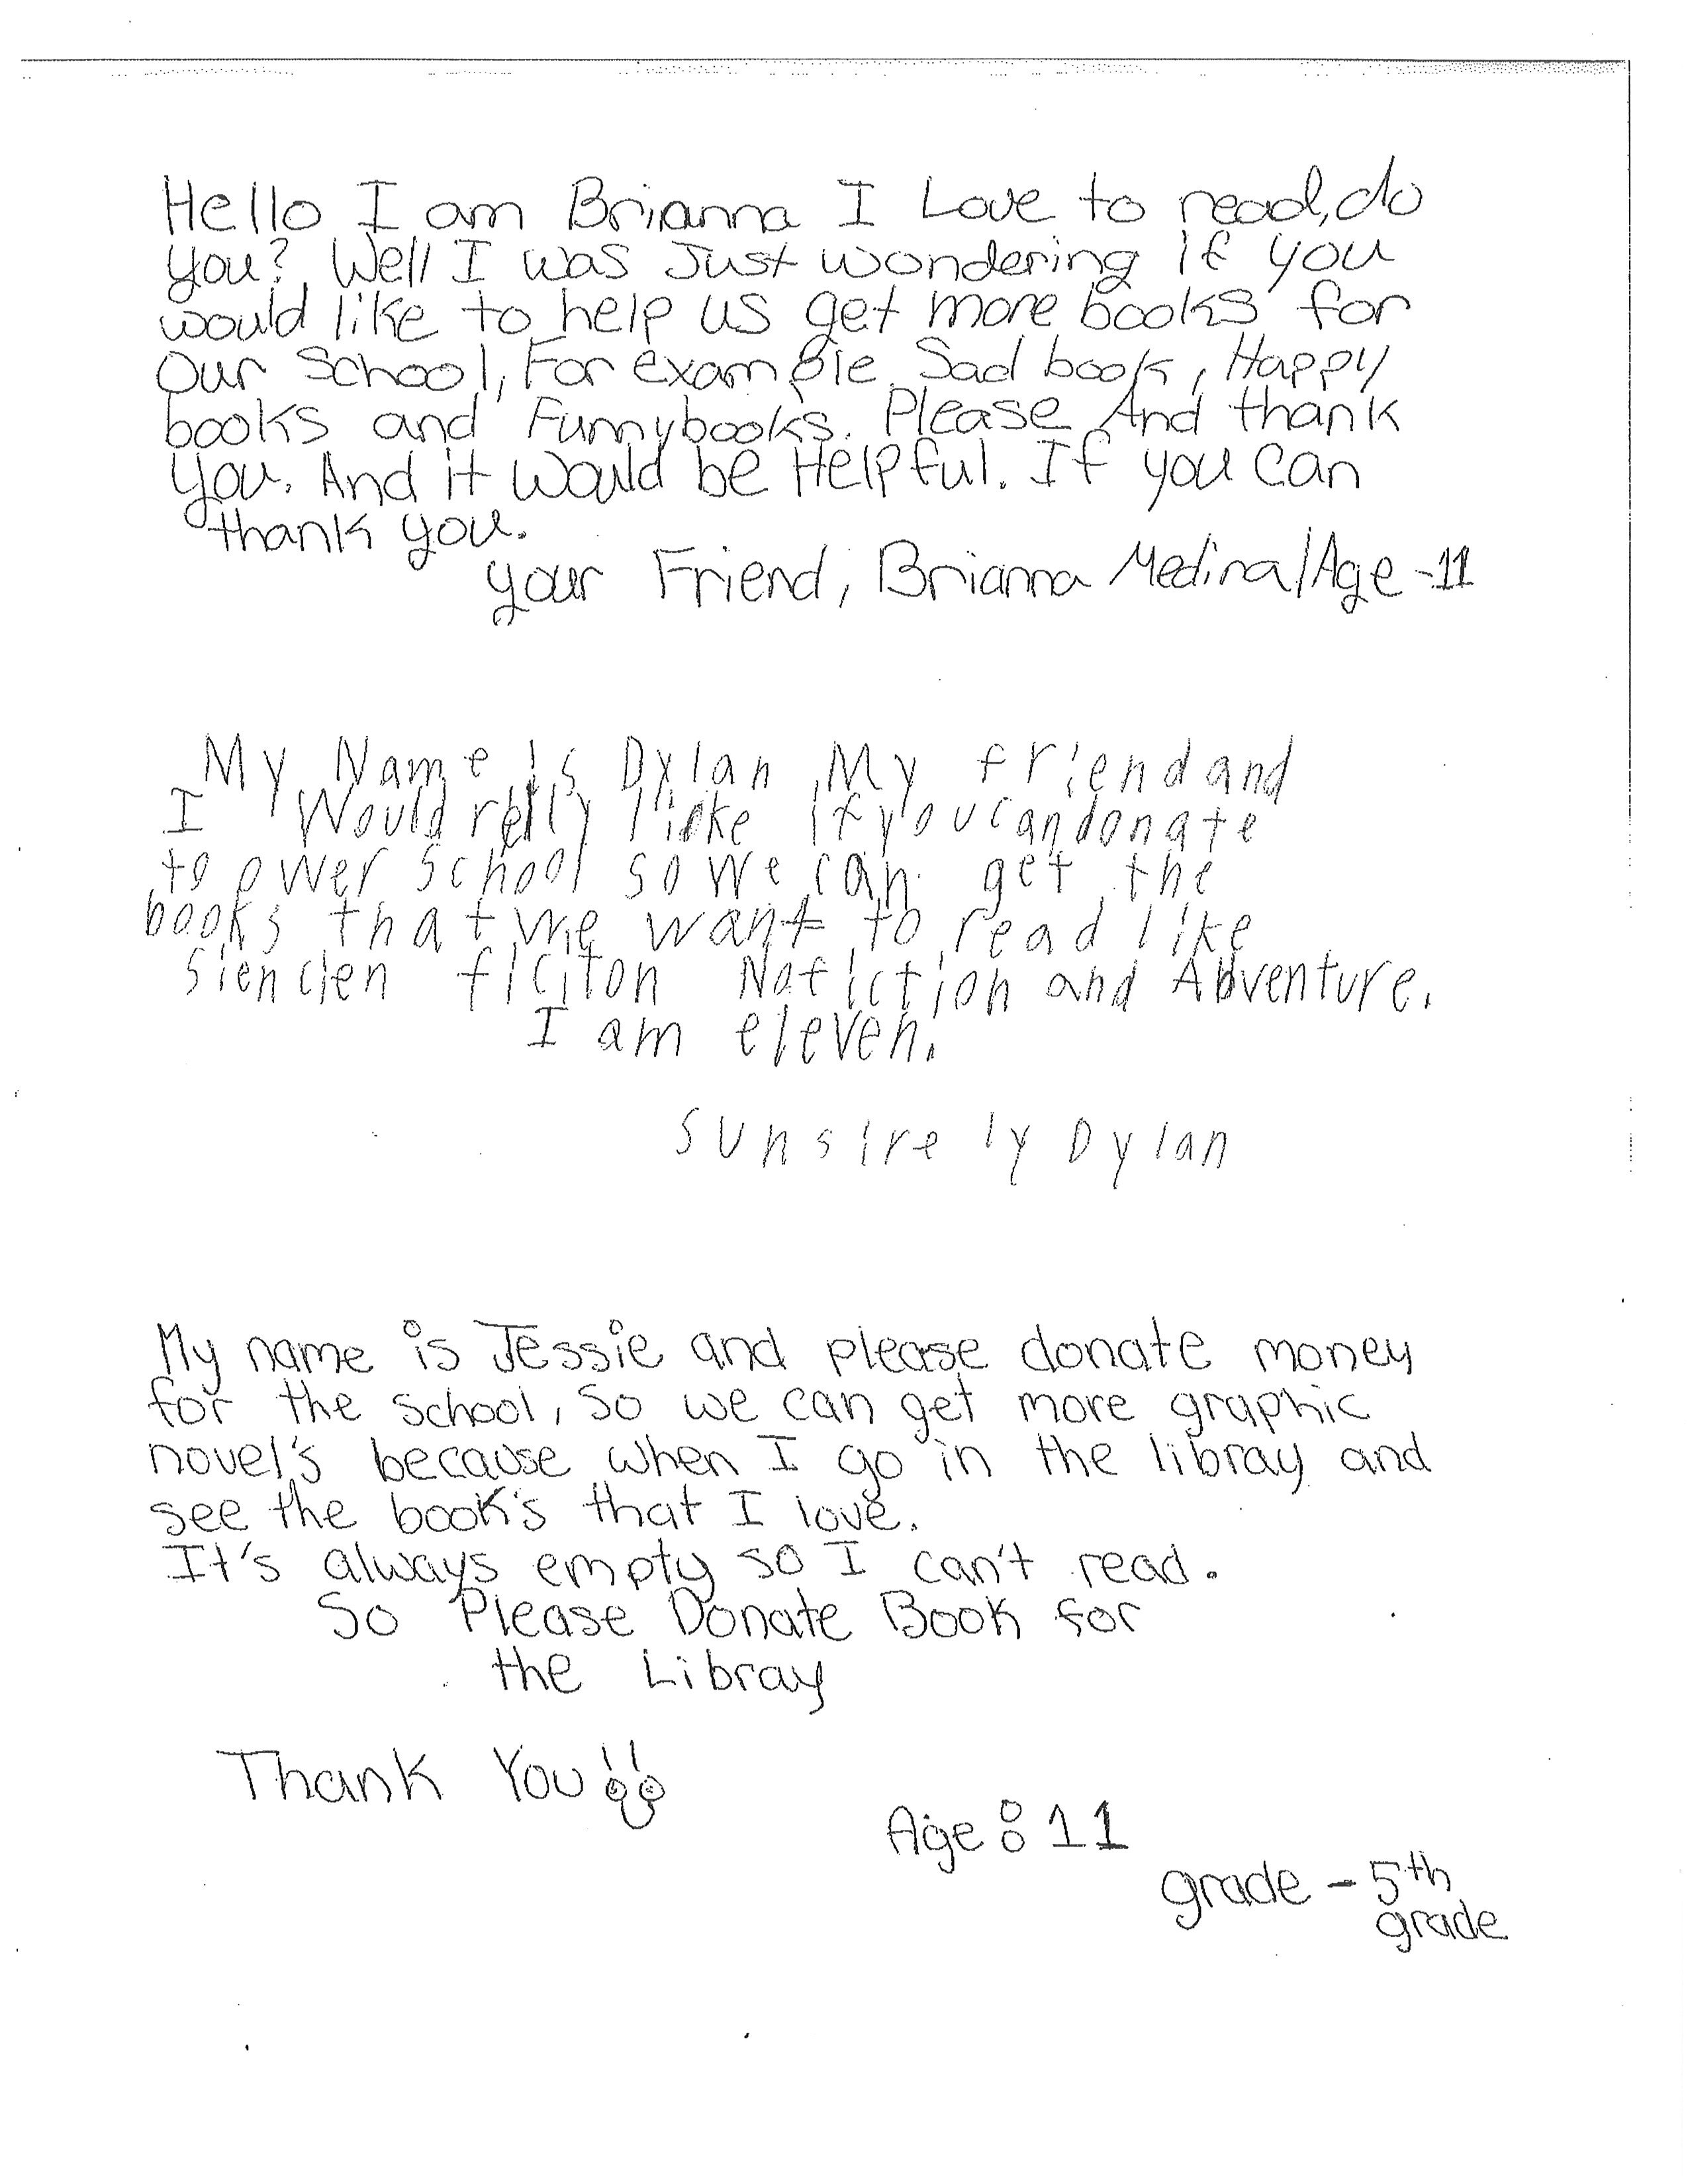 Hello I am Brianna I Love to read, do
you? Well I was Just wondering if you
would like to help us get more books for
Our School, For example Sad book, Happy
books and Funnybooks. Please And thank
you. And it would be Helpful. If you Can
thank you.
your Friend, Brianna Medina/Age -11
My Name is Dylan My friend and
I Would relly like if you can donate
to ower school so we can get the
books that we want to read like
siencien ficiton Nofiction and Abventure.
I am eleven.
Sunsirely Dylan
My name is Jessie and please donate money
for the school, So we can get more graphic
novel's because when I go in the libray and
see the book's that I love.
It's always empty so I can't read.
So Please Donate Book for
the Libray
Thank You!!
Age: 11
grade - 5th
grade